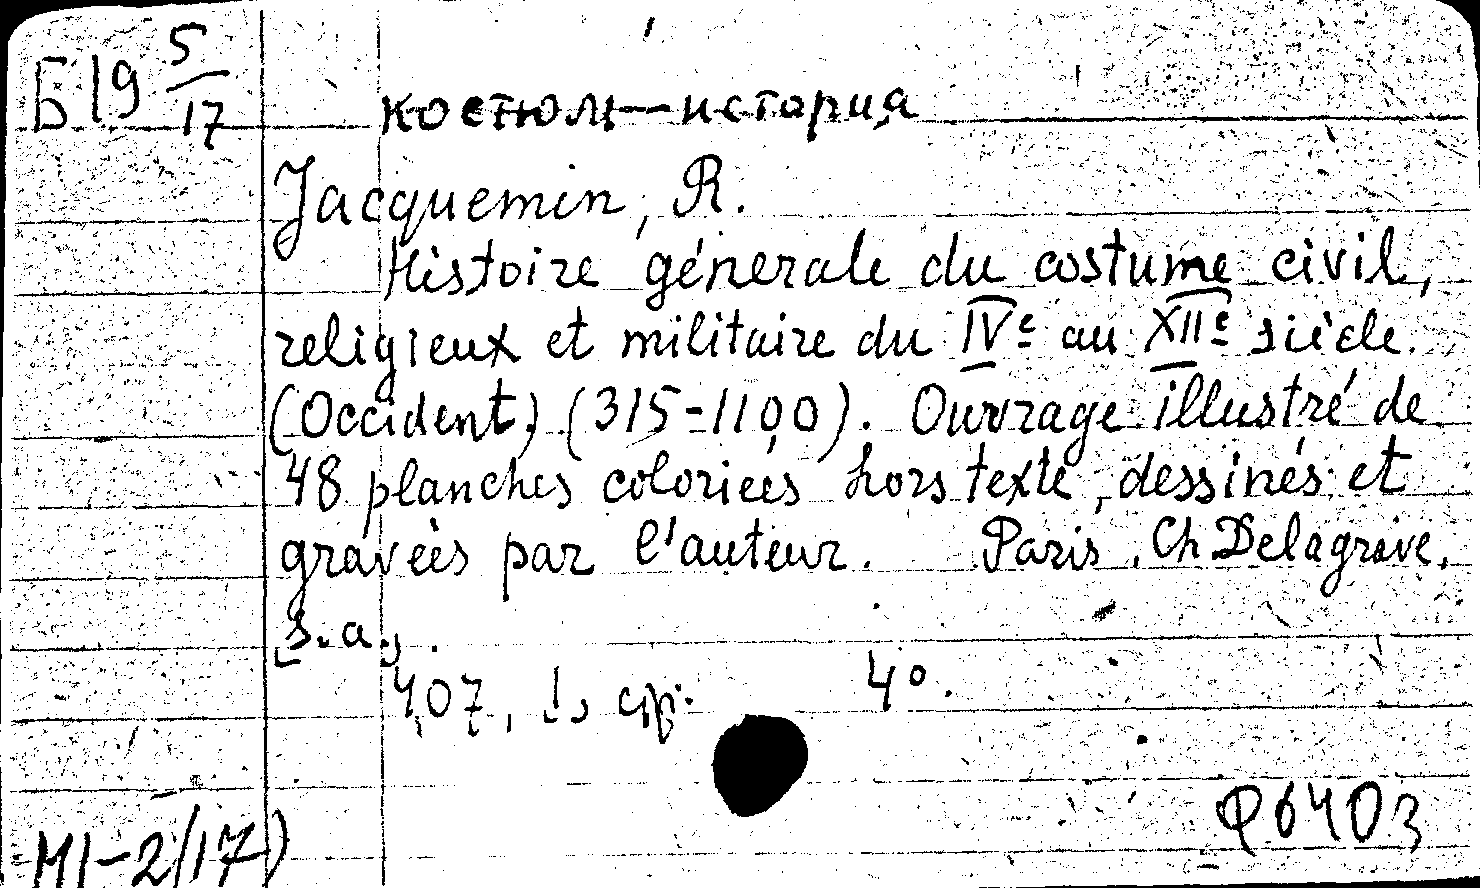 Б19 5/17
костюм — история
Jacquemin, R.
Histoire générale du costume civil,
religieux et militaire du IVe au XIIe siècle.
(Occident) (315-1100). Ouvrage illustré de
48 planches coloriées hors texte, dessinés et
gravèes par l'auteur. Paris, Ch Delagrave,
[s.a.]
407, [1] стр. 4°.
Ф6403
М1-2(17)